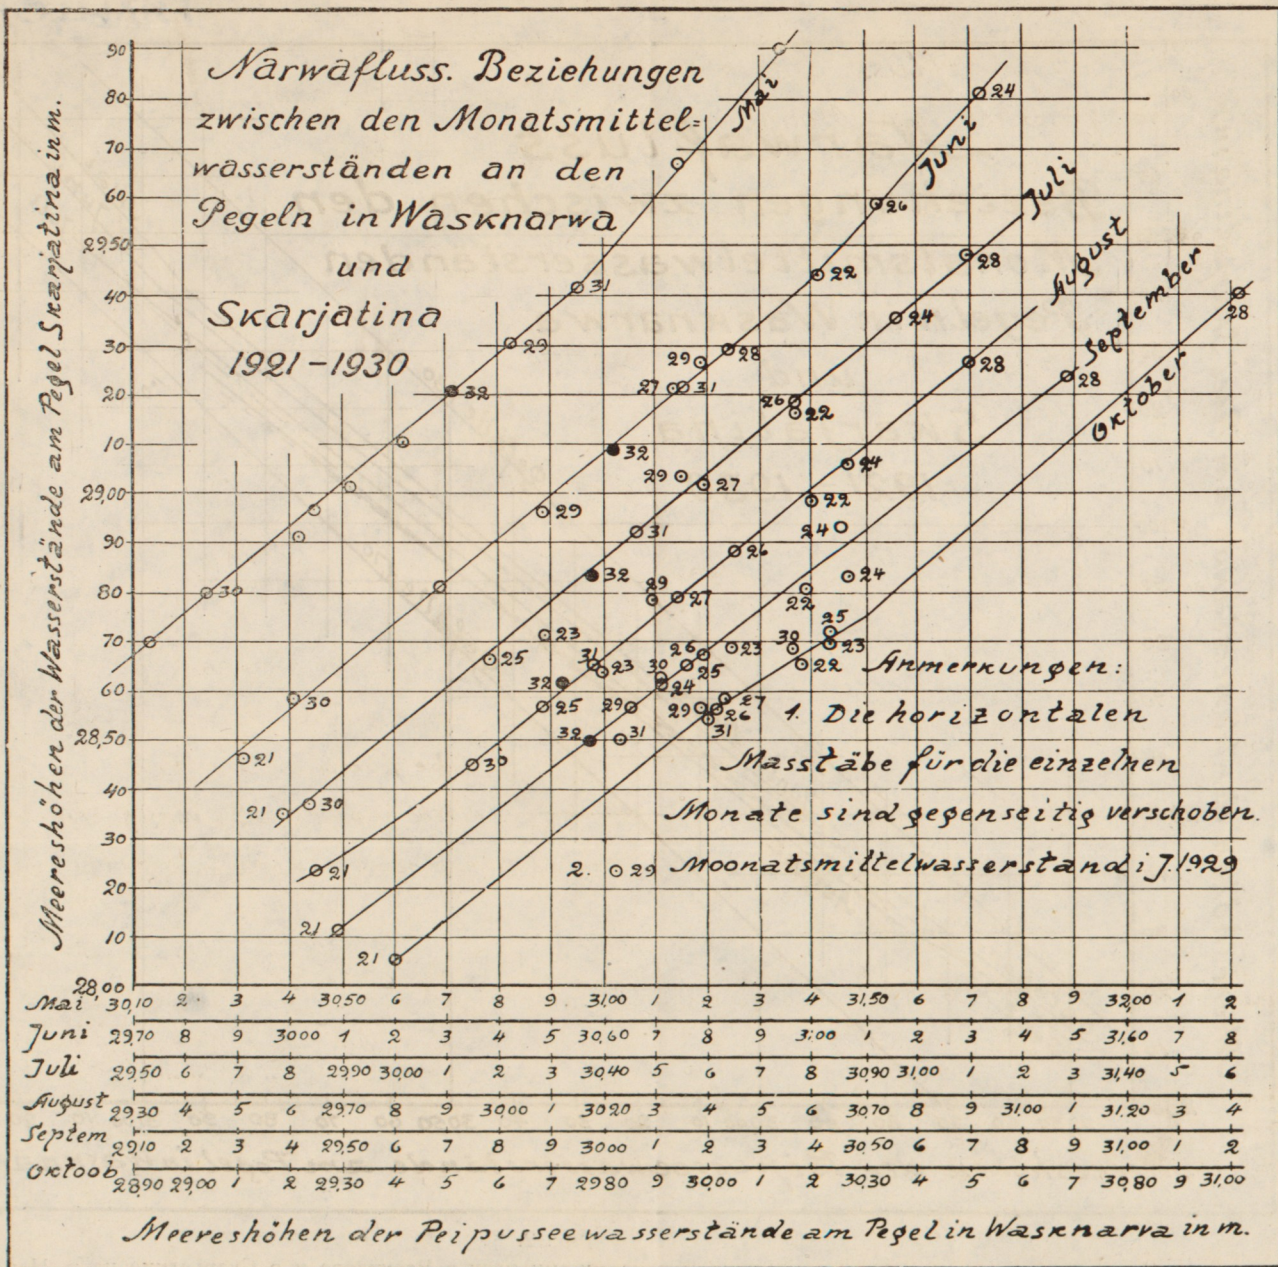 Narwafluss. Beziehungen
zwischen den Monatsmittel=
wasserständen an den
Pegeln in Wasknarwa
und
Skarjatina
1921-1930
Meereshöhen der Wasserstände am Pegel Skarjatina in m.
90
80
70
60
29,50
40
30
20
10
29,00
90
80
70
60
28,50
40
30
20
10
28,00
Mai
30
32
29
31
Juni
21
30
29
32
27
31
29
28
22
26
24
Juli
21
30
25
23
32
31
29
27
26
22
24
28
August
21
30
25
32
31
23
29
27
26
22
24
24
28
September
21
32
31
29
30
24
25
26
23
22
24
28
Oktober
21
29
31
26
27
30
22
23
25
28
Anmerkungen:
1. Die horizontalen
Masstäbe für die einzelnen
Monate sind gegenseitig verschoben.
2. 29 Moonatsmittelwasserstand i J. 1929
Mai 30,10 2 3 4 30,50 6 7 8 9 31,00 1 2 3 4 31,50 6 7 8 9 32,00 1 2
Juni 29,70 8 9 3000 1 2 3 4 5 30,60 7 8 9 31:00 1 2 3 4 5 31,60 7 8
Juli 29,50 6 7 8 29,90 30,00 1 2 3 30,40 5 6 7 8 30,90 31,00 1 2 3 31,40 5 6
August 29,30 4 5 6 29,70 8 9 30,00 1 3020 3 4 5 6 30,70 8 9 31,00 1 31,20 3 4
Septem 29,10 2 3 4 29,50 6 7 8 9 3000 1 2 3 4 30,50 6 7 8 9 31,00 1 2
Oktoob. 28,90 29,00 1 2 29,30 4 5 6 7 2980 9 30,00 1 2 30,30 4 5 6 7 30,80 9 31,00
Meereshöhen der Peipussee wasserstände am Pegel in Wasknarva in m.